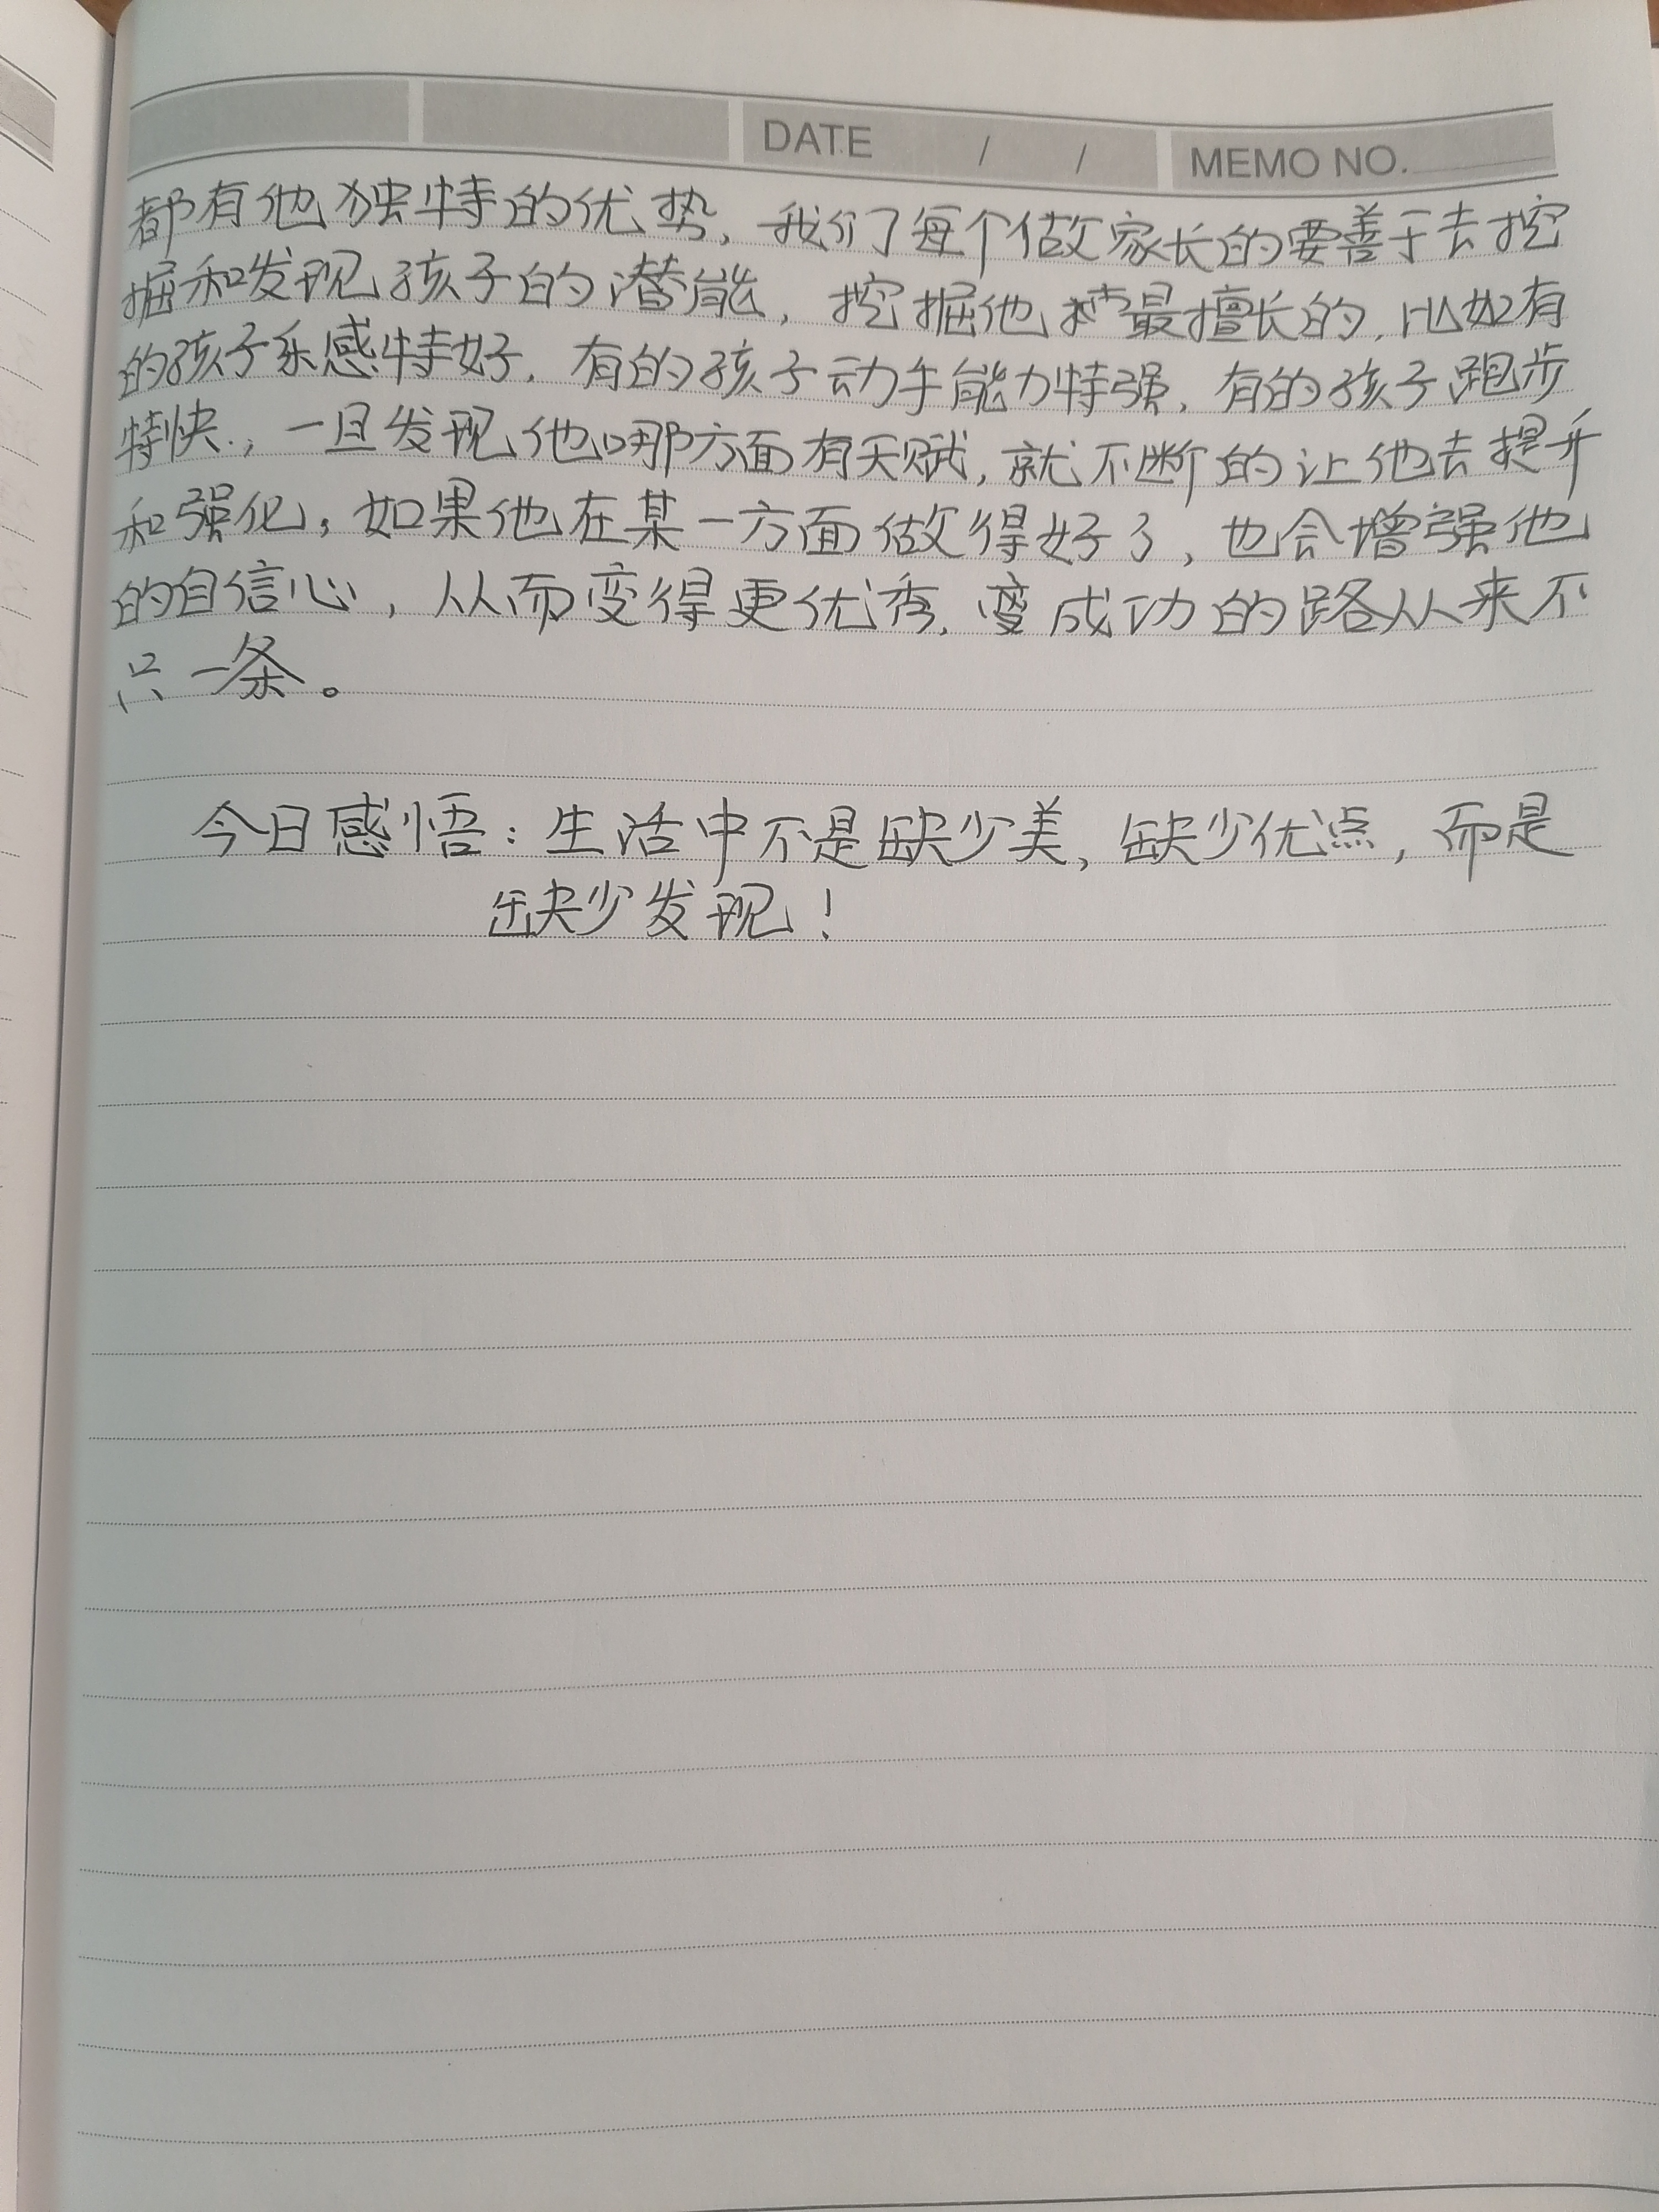 DATE / / MEMO NO.
都有他独特的优势，我们每个做家长的要善于去挖
掘和发现孩子的潜能，挖掘他最擅长的，比如有
的孩子乐感特好，有的孩子动手能力特强，有的孩子跑步
特快，一旦发现他哪方面有天赋，就不断的让他去提升
和强化，如果他在某一方面做得好了，也会增强他
的自信心，从而变得更优秀，变成功的路从来不
只一条。
今日感悟：生活中不是缺少美，缺少优点，而是
缺少发现！